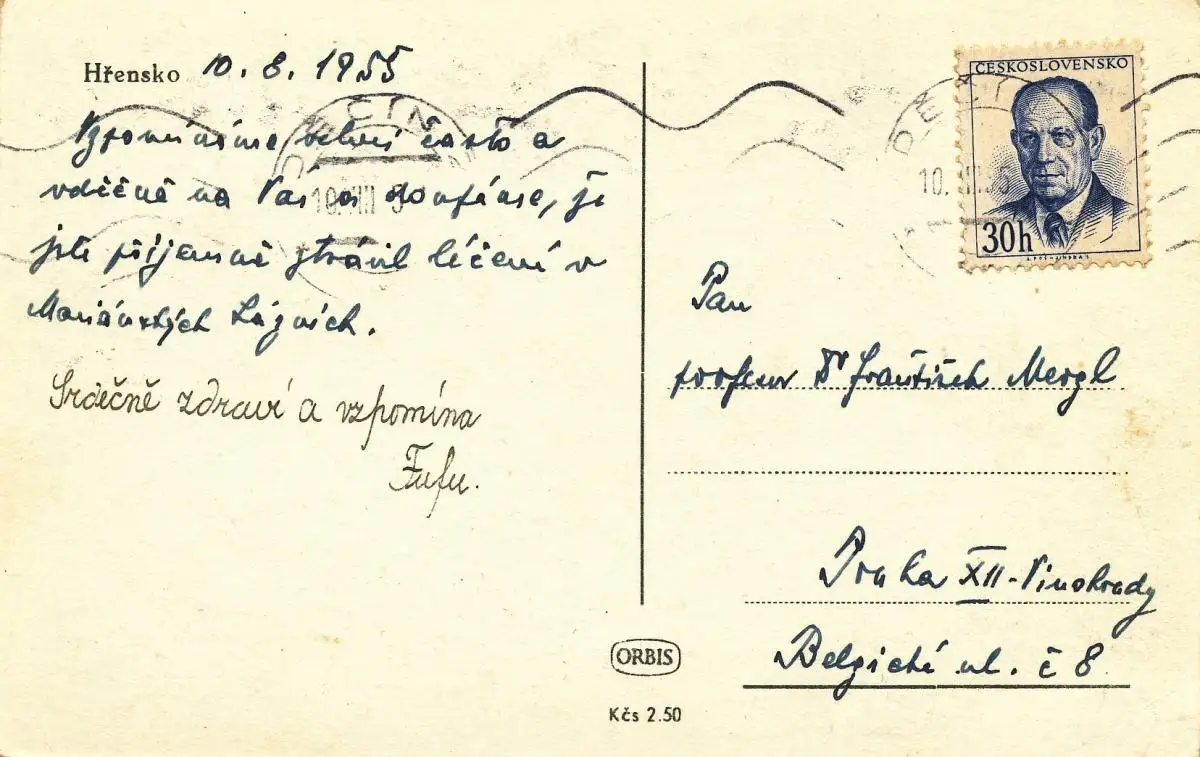 Hřensko 10. 8. 1955
Vzpomínáme velmi často a
vděčně na Vás a doufáme, že
jste příjemně strávil léčení v
Mariánských Lázních.
Srdečně zdraví a vzpomíná
Fufu.
ČESKOSLOVENSKO
30h
DĚČÍN
10. VIII. 55
DĚČÍN
10. VIII. 55
Pan
profesor Dr František Mergl
Praha XII-Vinohrady
Belgická ul. č 8
ORBIS
Kčs 2.50